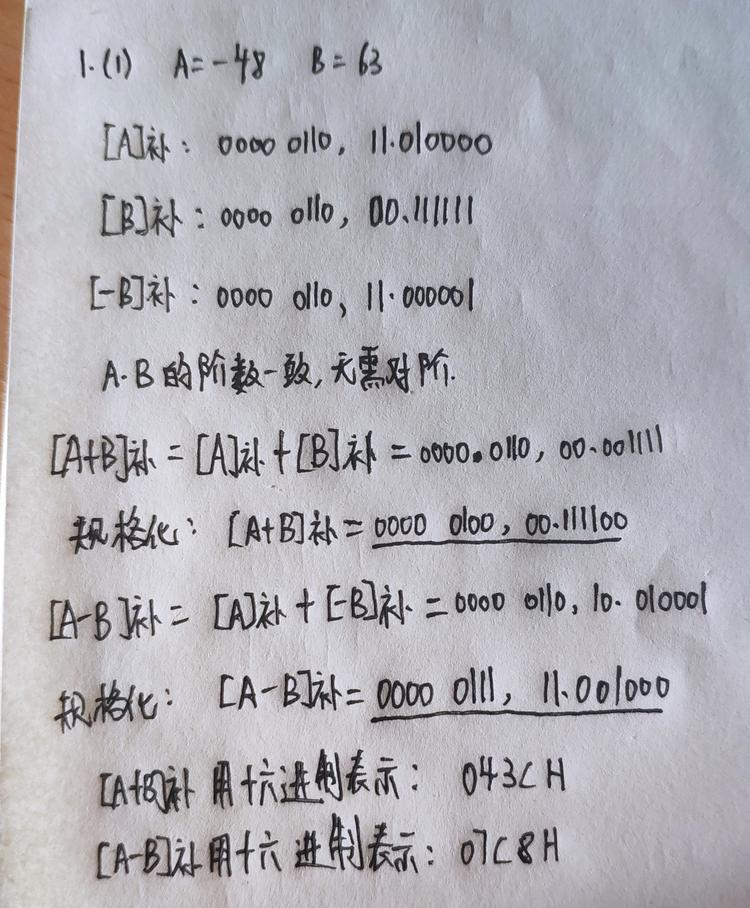 1.(1) A=-48 B=63
[A]补: 0000 0110, 11.010000
[B]补: 0000 0110, 00.111111
[-B]补: 0000 0110, 11.000001
A.B的阶数一致,无需对阶.
[A+B]补=[A]补+[B]补=0000.0110, 00.001111
规格化: [A+B]补=0000 0100, 00.111100
[A-B]补=[A]补+[-B]补=0000 0110, 10.010001
规格化: [A-B]补=0000 0111, 11.001000
[A+B]补用十六进制表示: 043CH
[A-B]补用十六进制表示: 07C8H